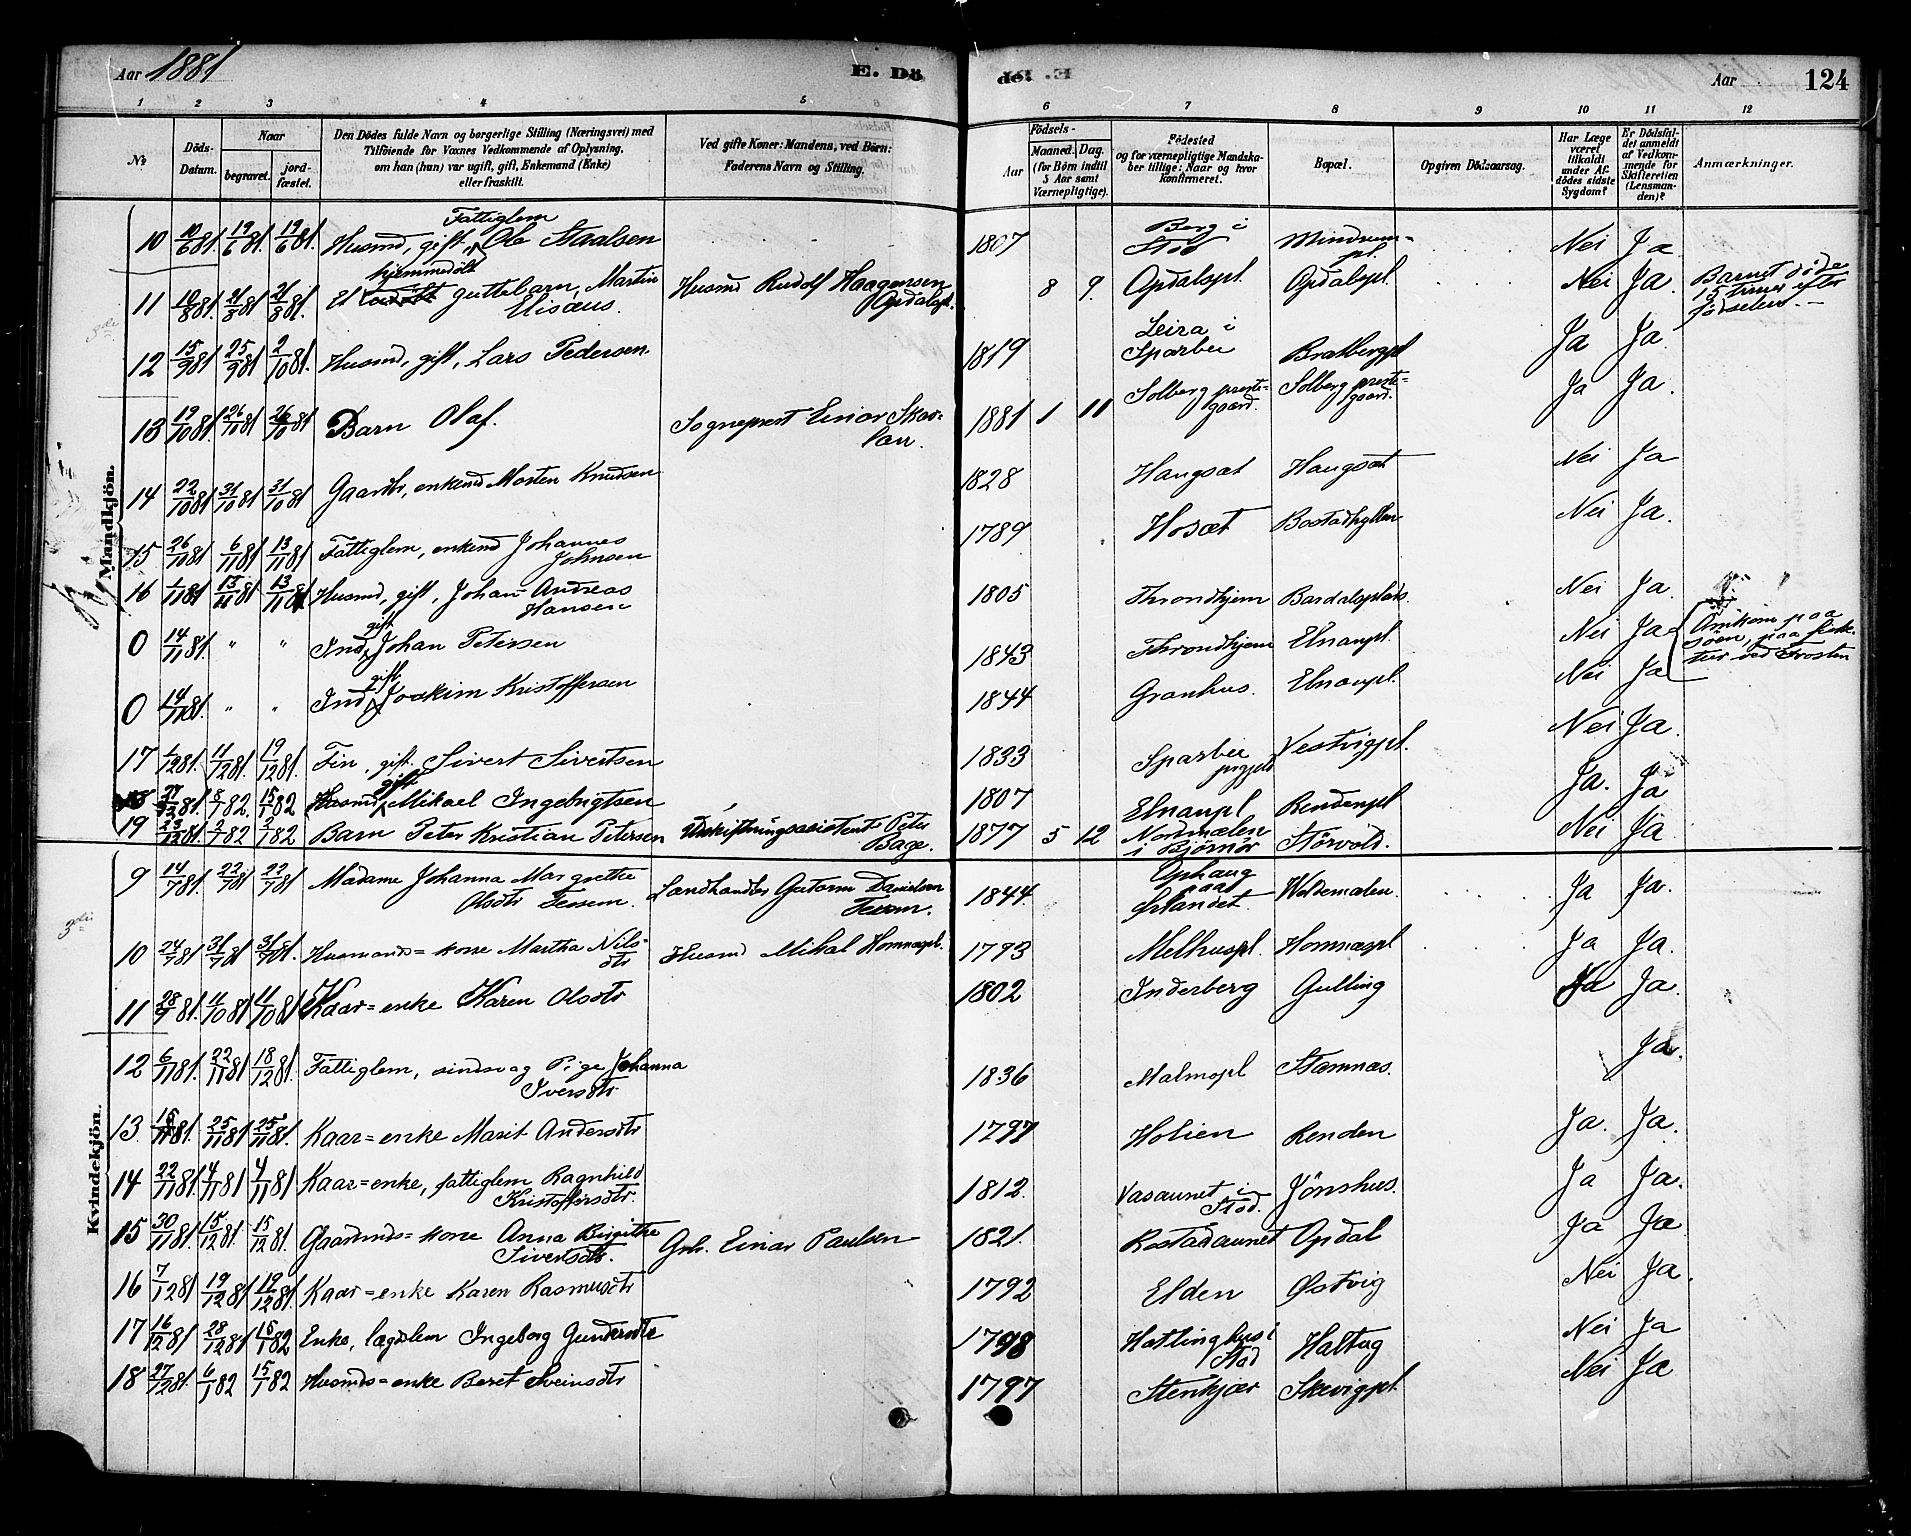 Aar 1881
E. Dö
de. E.
Aar 124
1 2 3 4 5 6 7 8 9 10 11 12
No
Döds-Datum.
Naar begravet. jord-fæstet.
Den Dödes fulde Navn og borgerlige Stilling (Næringsvei) med Tilföiende for Voxnes Vedkommende af Oplysning, om han (hun) var ugift, gift, Enkemand (Enke) eller fraskilt.
Ved gifte Koner: Mandens, ved Börn: Faderens Navn og Stilling.
Födsels-
Aar
Maaned. Dag.
(for Börn indtil 5 Aar samt Værnepligtige).
Födested og for værnepligtige Mandskaber tillige: Naar og hvor Konfirmeret.
Bopæl.
Opgiven Dödsaarsag.
Har Læge været tilkaldt under Afdödes sidste Sygdom?
Er Dödsfaldet anmeldt af Vedkommende for Skifteretten (Lensmanden)?
Anmærkninger.
Mandkjön.
10 10/6 81. 19/6 81. 19/6 81. Husmd, gift, Fattiglem Ole Staalsen 1807 Berg i Stod Mindrumpl. Nei Ja
11 18/8 81. 21/8 81. 21/8 81. Et hjemmedöbt guttebarn, Martin Elisæus. Husmd Rudolf Haagensen Opdalspl. 8 9. Opdalspl. Opdalspl. Nei Ja. Barnet döde 15 timer efter födselen.
12 15/9 81. 25/9 81. 2/10 81. Husmd, gift, Lars Pedersen. 1819 Leira i Sparbu Brakbergpl Ja Ja.
13 19/10 81. 26/10 81 26/10 81. Barn Olaf. Sogneprest Einar Skavlan. 1881 1 11 Solberg prestegaard. Solberg prestegaard. Ja Ja.
14 22/10 81. 31/10 81 31/10 81 Gaardbr, enkemd Morten Knudsen 1828 Haugsæt Haugsæt Nei Ja
15 26/10 81. 6/11 81 13/11 81 Fattiglem, enkemd Johannes Johnsen 1789 Hosæt Bostadhyllen Nei Ja.
16 1/11 81 13/11 81 13/11 81 Husmd, gift, Johan Andreas Hansen 1805 Throndhjem Bardalsplads. Nei Ja.
0 14/11 81. " " Ind. gift Johan Petersen 1843 Throndhjem Elnanpl. Nei Ja Omkom paa söen, paa fisketur ved Frosten
0 14/11 81. " " Ind. gift Joakim Kristoffersen 1844 Granhus. Elnanpl. Nei Ja
17 1/12 81. 11/12 81. 19/12 81. Fin, gift. Sivert Sivertsen 1833 Sparbu prgjeld Vestvigpl. Nei Ja.
18 27/12 81. 8/1 82. 15/1 82 Husmd, gift Mikael Ingebrigtsen 1807 Elnanpl Rendenpl Ja. Ja
19 23/12 81. 2/1 82 2/1 82 Barn Peter Kristian Petersen Udskiftningsassistent Peter Bage. 1877 5 12 Nordmælen i Bjørnør Störvold. Nei Ja
Kvindekjön.
9 14/7 81. 22/7 81 22/7 81 Madame Johanna Margrethe Olsdtr Tessem. Landhandler Gutorm Danielsen Tessem. 1844. Ophaug paa Ørlandet. Woldemalen. Ja Ja.
10 24/7 81 31/7 81 31/7 81. Husmands-kone Martha Nilsdtr Husmd Mikal Homnæspl. 1793 Melhuspl. Homnæspl Ja Ja.
11 28/9 81. 11/10 81 11/10 81 Kaar-enke Karen Olsdtr 1802 Inderberg Gulling Ja Ja.
12 6/11 81. 22/11 81 18/12 81. Fattiglem, sindsvag Pige Johanna Iversdtr 1836 Malmopl Stamnæs. Ja.
13 15/11 81. 25/11 81 25/11 81. Kaar-enke Marit Andersdtr 1797 Holien Renden Ja. Ja.
14 22/11 81 4/11 81 4/11 81 Kaar-enke, fattiglem Ragnhild Kristoffersdtr. 1812. Vasaunet i Stod. Jönshus. Ja Ja.
15 30/11 81. 15/12 81. 15/12 81. Gaardmds-kone Anna Birgitte Sivertsdtr. Gbr. Einar Paulsen 1821. Rostadaunet Opdal Ja Ja
16 7/12 81 19/12 81 19/12 81. Kaar-enke Karen Rasmusdtr 1792 Elden Østvig Nei Ja.
17 16/12 81. 28/12 81 15/1 82 Enke, lægdslem Ingeborg Gundersdtr 1798 Hatlinghus i Stod Haltug Nei Ja
18 27/12 81. 6/1 82 15/1 82 Husmds-enke Beret Sveinsdtr 1797 Stenkjær Skevigpl. Nei Ja